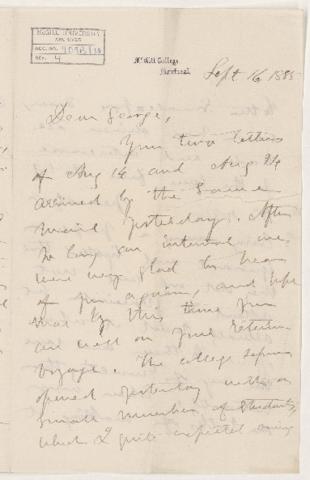 McGILL UNIVERSITY
ARCHIVES
ACC. NO.
REF. 4
McGill College
Montreal
Sept 16 1885
Dear George,
Your two letters
of Aug 14 and Aug 24
arrived by the same
mail yesterday. After
so long an interval we
were very glad to hear
of you again, and hope
that by this time you
are well on your return
voyage. The college
opened yesterday with a
small number of students,
which I quite expected owing